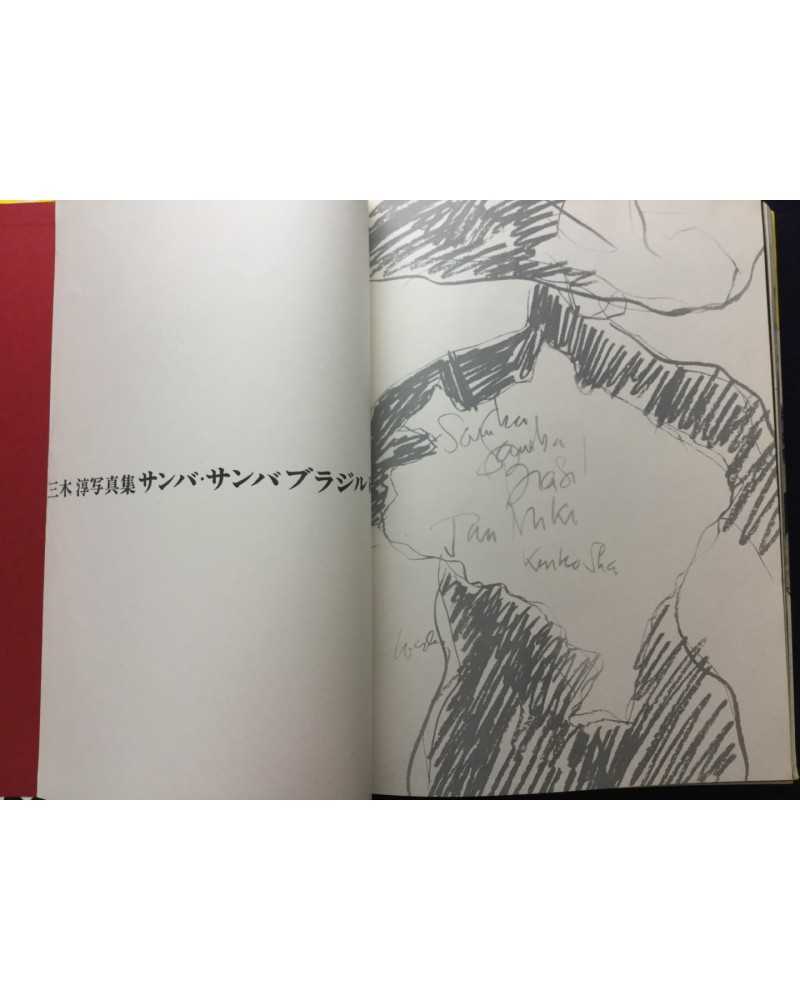 三木 淳写真集 サンバ・サンバ ブラジル
Samba
Samba
Brasil
Jun Miki
Kenko Sha